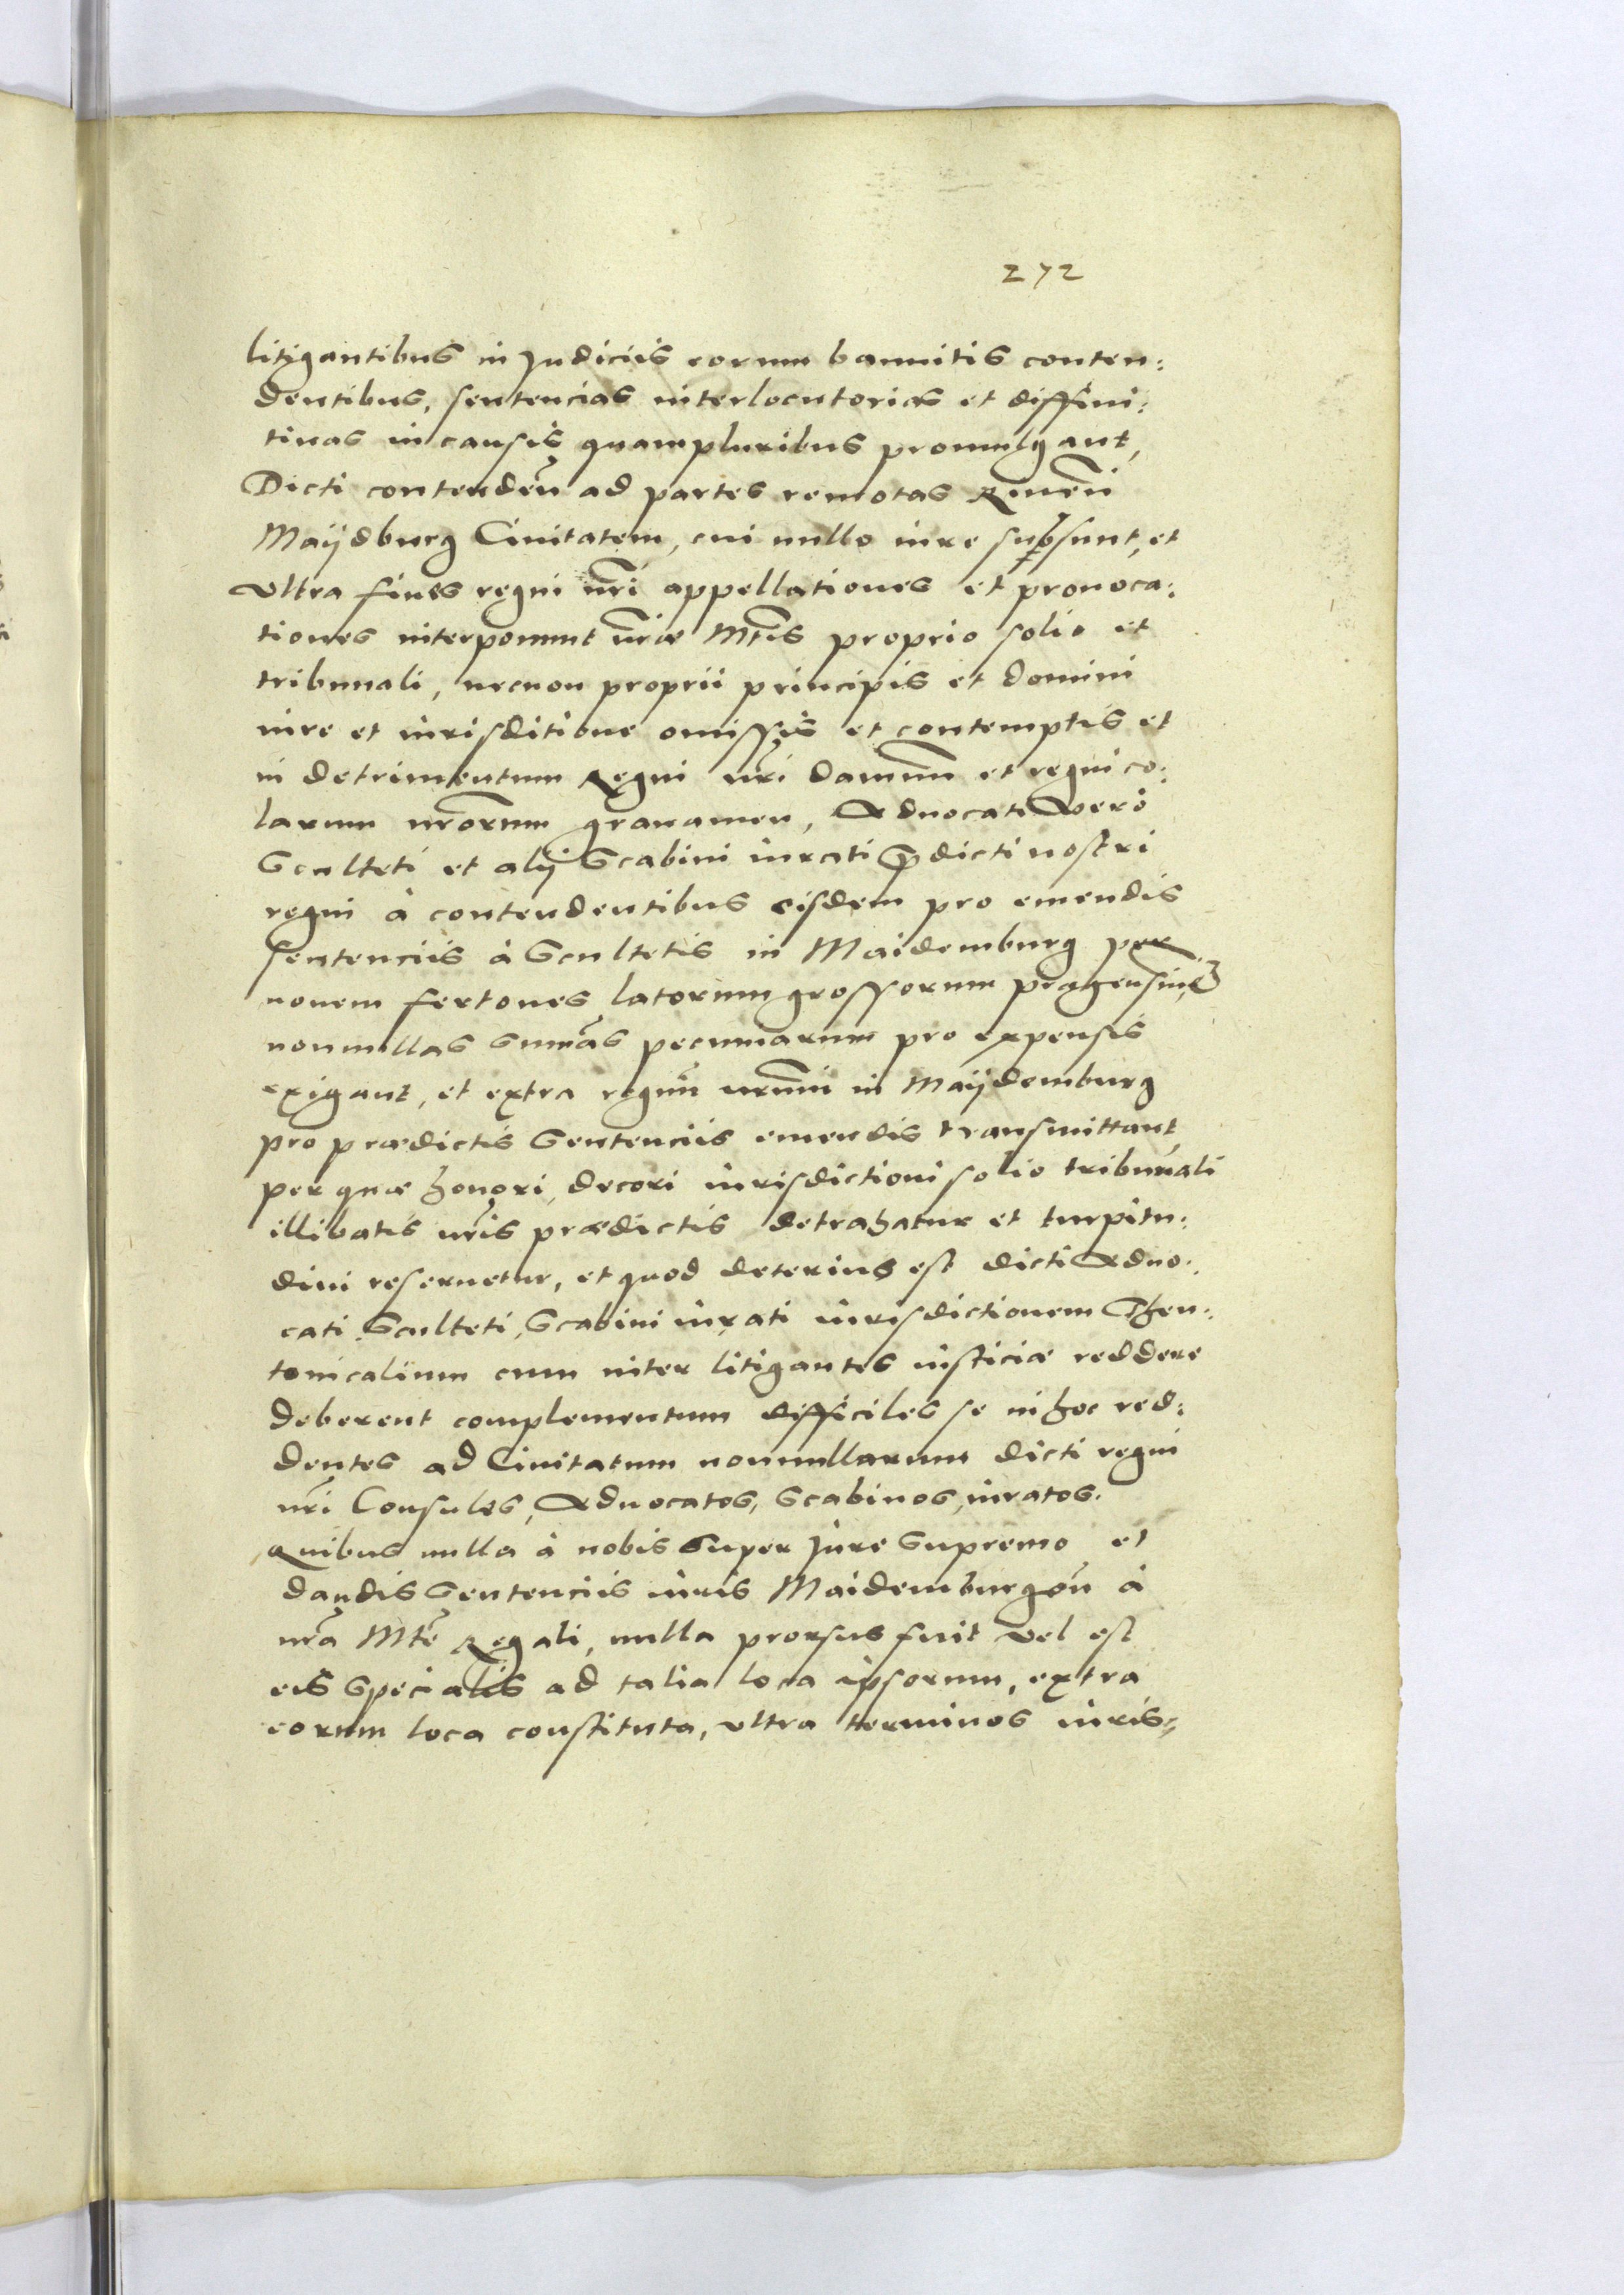 272
litigantibus in Judiciis eorum bannitis conten:
dentibus, sentencias interlocutorias et diffini:
tiuas in causis quampluribus promulgant,
Dicti contendeñ ad partes remotas
Maijdburg Ciuitatem, cui nullo iure subsunt, et
vltra fines regni nr̃i appellationes et prouoca:
tiones interponunt nr̃æ Mtis proprio solio et
tribunali, necnon proprii principis et domini
iure et iurisditione omissis et contemptis et
in detrimentum Regni nr̃i damnũ et regnico:
larum nr̃orum grauamen, Aduocati vero
Sculteti et alij Scabini iurati p̃dicti nostri
regni à contendentibus eisdem pro emendis
sentenciis à Scultetis in Maidemburg per
nouem fertones latorum grossorum pragensiũ
nonnullas sum̃as pecuniarum pro expensis
exigant, et extra regnũ nr̃um in Maijdemburg
pro prædictis Sentenciis emendis transmittant
per quæ honori, decori iurisdictioni solio tribunali
illibatis nr̃is prædictis detrahatur et turpitu:
dini reseruetur, et quod deterius est dicti Aduo:
cati, Sculteti, Scabini iurati iurisdictionem Theu:
tonicalium cum inter litigantes iusticiæ reddere
deberent complementum difficiles se in hoc red:
dentes ad Ciuitatum nonnullarum dicti regni
nr̃i Consules, Aduocatos, Scabinos, iuratos.
Quibus nulla à nobis super Jure supremo et
dandis Sentenciis iuris Maidemburgeñ à
nr̃a Mte Regali, nulla prorsus fuit vel est
eis Specialis ad talia loca ipsorum, extra
eorum loca constituta, vltra terminos iuris: